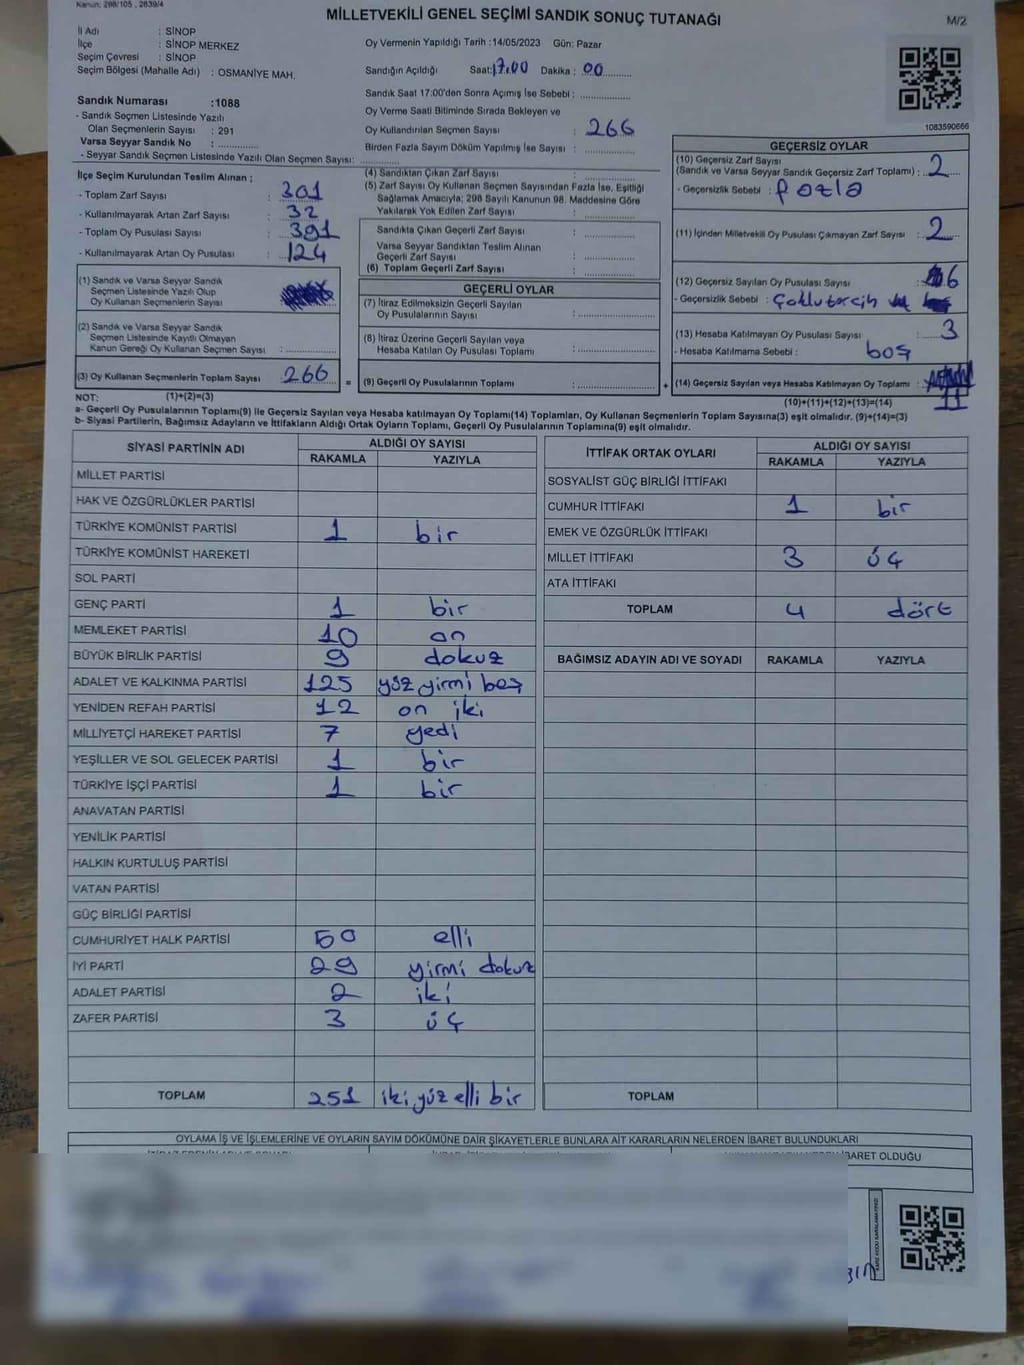 Kanun: 298/105 , 2839/4
MİLLETVEKİLİ GENEL SEÇİMİ SANDIK SONUÇ TUTANAĞI
M/2
İl Adı : SİNOP
İlçe : SİNOP MERKEZ
Seçim Çevresi : SİNOP
Seçim Bölgesi (Mahalle Adı) : OSMANİYE MAH.
Oy Vermenin Yapıldığı Tarih :14/05/2023 Gün: Pazar
Sandığın Açıldığı Saat: 17.00 Dakika : 00
Sandık Saat 17:00'den Sonra Açımış İse Sebebi :
Oy Verme Saati Bitiminde Sırada Bekleyen ve
Oy Kullandırılan Seçmen Sayısı : 266
Birden Fazla Sayım Döküm Yapılmış İse Sayısı :
Sandık Numarası :1088
- Sandık Seçmen Listesinde Yazılı
Olan Seçmenlerin Sayısı : 291
Varsa Seyyar Sandık No :
- Seyyar Sandık Seçmen Listesinde Yazılı Olan Seçmen Sayısı:
1083590666
İlçe Seçim Kurulundan Teslim Alınan ;
- Toplam Zarf Sayısı : 301
- Kullanılmayarak Artan Zarf Sayısı : 32
- Toplam Oy Pusulası Sayısı : 391
- Kullanılmayarak Artan Oy Pusulası : 124
(1) Sandık ve Varsa Seyyar Sandık
Seçmen Listesinde Yazılı Olup
Oy Kullanan Seçmenlerin Sayısı :
(2) Sandık ve Varsa Seyyar Sandık
Seçmen Listesinde Kayıtlı Olmayan
Kanun Gereği Oy Kullanan Seçmen Sayısı :
(3) Oy Kullanan Seçmenlerin Toplam Sayısı : 266
(1)+(2)=(3)
(4) Sandıktan Çıkan Zarf Sayısı :
(5) Zarf Sayısı Oy Kullanan Seçmen Sayısından Fazla İse, Eşitliği
Sağlamak Amacıyla; 298 Sayılı Kanunun 98. Maddesine Göre
Yakılarak Yok Edilen Zarf Sayısı :
Sandıkta Çıkan Geçerli Zarf Sayısı :
Varsa Seyyar Sandıktan Teslim Alınan
Geçerli Zarf Sayısı :
(6) Toplam Geçerli Zarf Sayısı :
GEÇERLİ OYLAR
(7) İtiraz Edilmeksizin Geçerli Sayılan
Oy Pusulalarının Sayısı :
(8) İtiraz Üzerine Geçerli Sayılan veya
Hesaba Katılan Oy Pusulası Toplamı :
= (9) Geçerli Oy Pusulalarının Toplamı : +
GEÇERSİZ OYLAR
(10) Geçersiz Zarf Sayısı
(Sandık ve Varsa Seyyar Sandık Geçersiz Zarf Toplamı) : 2
- Geçersizlik Sebebi : fazla
(11) İçinden Milletvekili Oy Pusulası Çıkmayan Zarf Sayısı : 2
(12) Geçersiz Sayılan Oy Pusulası Sayısı : 6
- Geçersizlik Sebebi : çoklutercih
(13) Hesaba Katılmayan Oy Pusulası Sayısı : 3
- Hesaba Katılmama Sebebi : boş
(14) Geçersiz Sayılan veya Hesaba Katılmayan Oy Toplamı : 11
(10)+(11)+(12)+(13)=(14)
NOT:
a- Geçerli Oy Pusulalarının Toplamı(9) ile Geçersiz Sayılan veya Hesaba katılmayan Oy Toplamı(14) Toplamları, Oy Kullanan Seçmenlerin Toplam Sayısına(3) eşit olmalıdır. (9)+(14)=(3)
b- Siyasi Partilerin, Bağımsız Adayların ve İttifakların Aldığı Ortak Oyların Toplamı, Geçerli Oy Pusulalarının Toplamına(9) eşit olmalıdır.
SİYASİ PARTİNİN ADI ALDIĞI OY SAYISI
RAKAMLA YAZIYLA
MİLLET PARTİSİ
HAK VE ÖZGÜRLÜKLER PARTİSİ
TÜRKİYE KOMÜNİST PARTİSİ 1 bir
TÜRKİYE KOMÜNİST HAREKETİ
SOL PARTİ
GENÇ PARTİ 1 bir
MEMLEKET PARTİSİ 10 on
BÜYÜK BİRLİK PARTİSİ 9 dokuz
ADALET VE KALKINMA PARTİSİ 125 yüz yirmi beş
YENİDEN REFAH PARTİSİ 12 on iki
MİLLİYETÇİ HAREKET PARTİSİ 7 yedi
YEŞİLLER VE SOL GELECEK PARTİSİ 1 bir
TÜRKİYE İŞÇİ PARTİSİ 1 bir
ANAVATAN PARTİSİ
YENİLİK PARTİSİ
HALKIN KURTULUŞ PARTİSİ
VATAN PARTİSİ
GÜÇ BİRLİĞİ PARTİSİ
CUMHURİYET HALK PARTİSİ 50 elli
İYİ PARTİ 29 yirmi dokuz
ADALET PARTİSİ 2 iki
ZAFER PARTİSİ 3 üç
TOPLAM 251 iki yüz elli bir
İTTİFAK ORTAK OYLARI ALDIĞI OY SAYISI
RAKAMLA YAZIYLA
SOSYALİST GÜÇ BİRLİĞİ İTTİFAKI
CUMHUR İTTİFAKI 1 bir
EMEK VE ÖZGÜRLÜK İTTİFAKI
MİLLET İTTİFAKI 3 üç
ATA İTTİFAKI
TOPLAM 4 dört
BAĞIMSIZ ADAYIN ADI VE SOYADI RAKAMLA YAZIYLA
TOPLAM
OYLAMA İŞ VE İŞLEMLERİNE VE OYLARIN SAYIM DÖKÜMÜNE DAİR ŞİKAYETLERLE BUNLARA AİT KARARLARIN NELERDEN İBARET BULUNDUKLARI
İBARET OLDUĞU